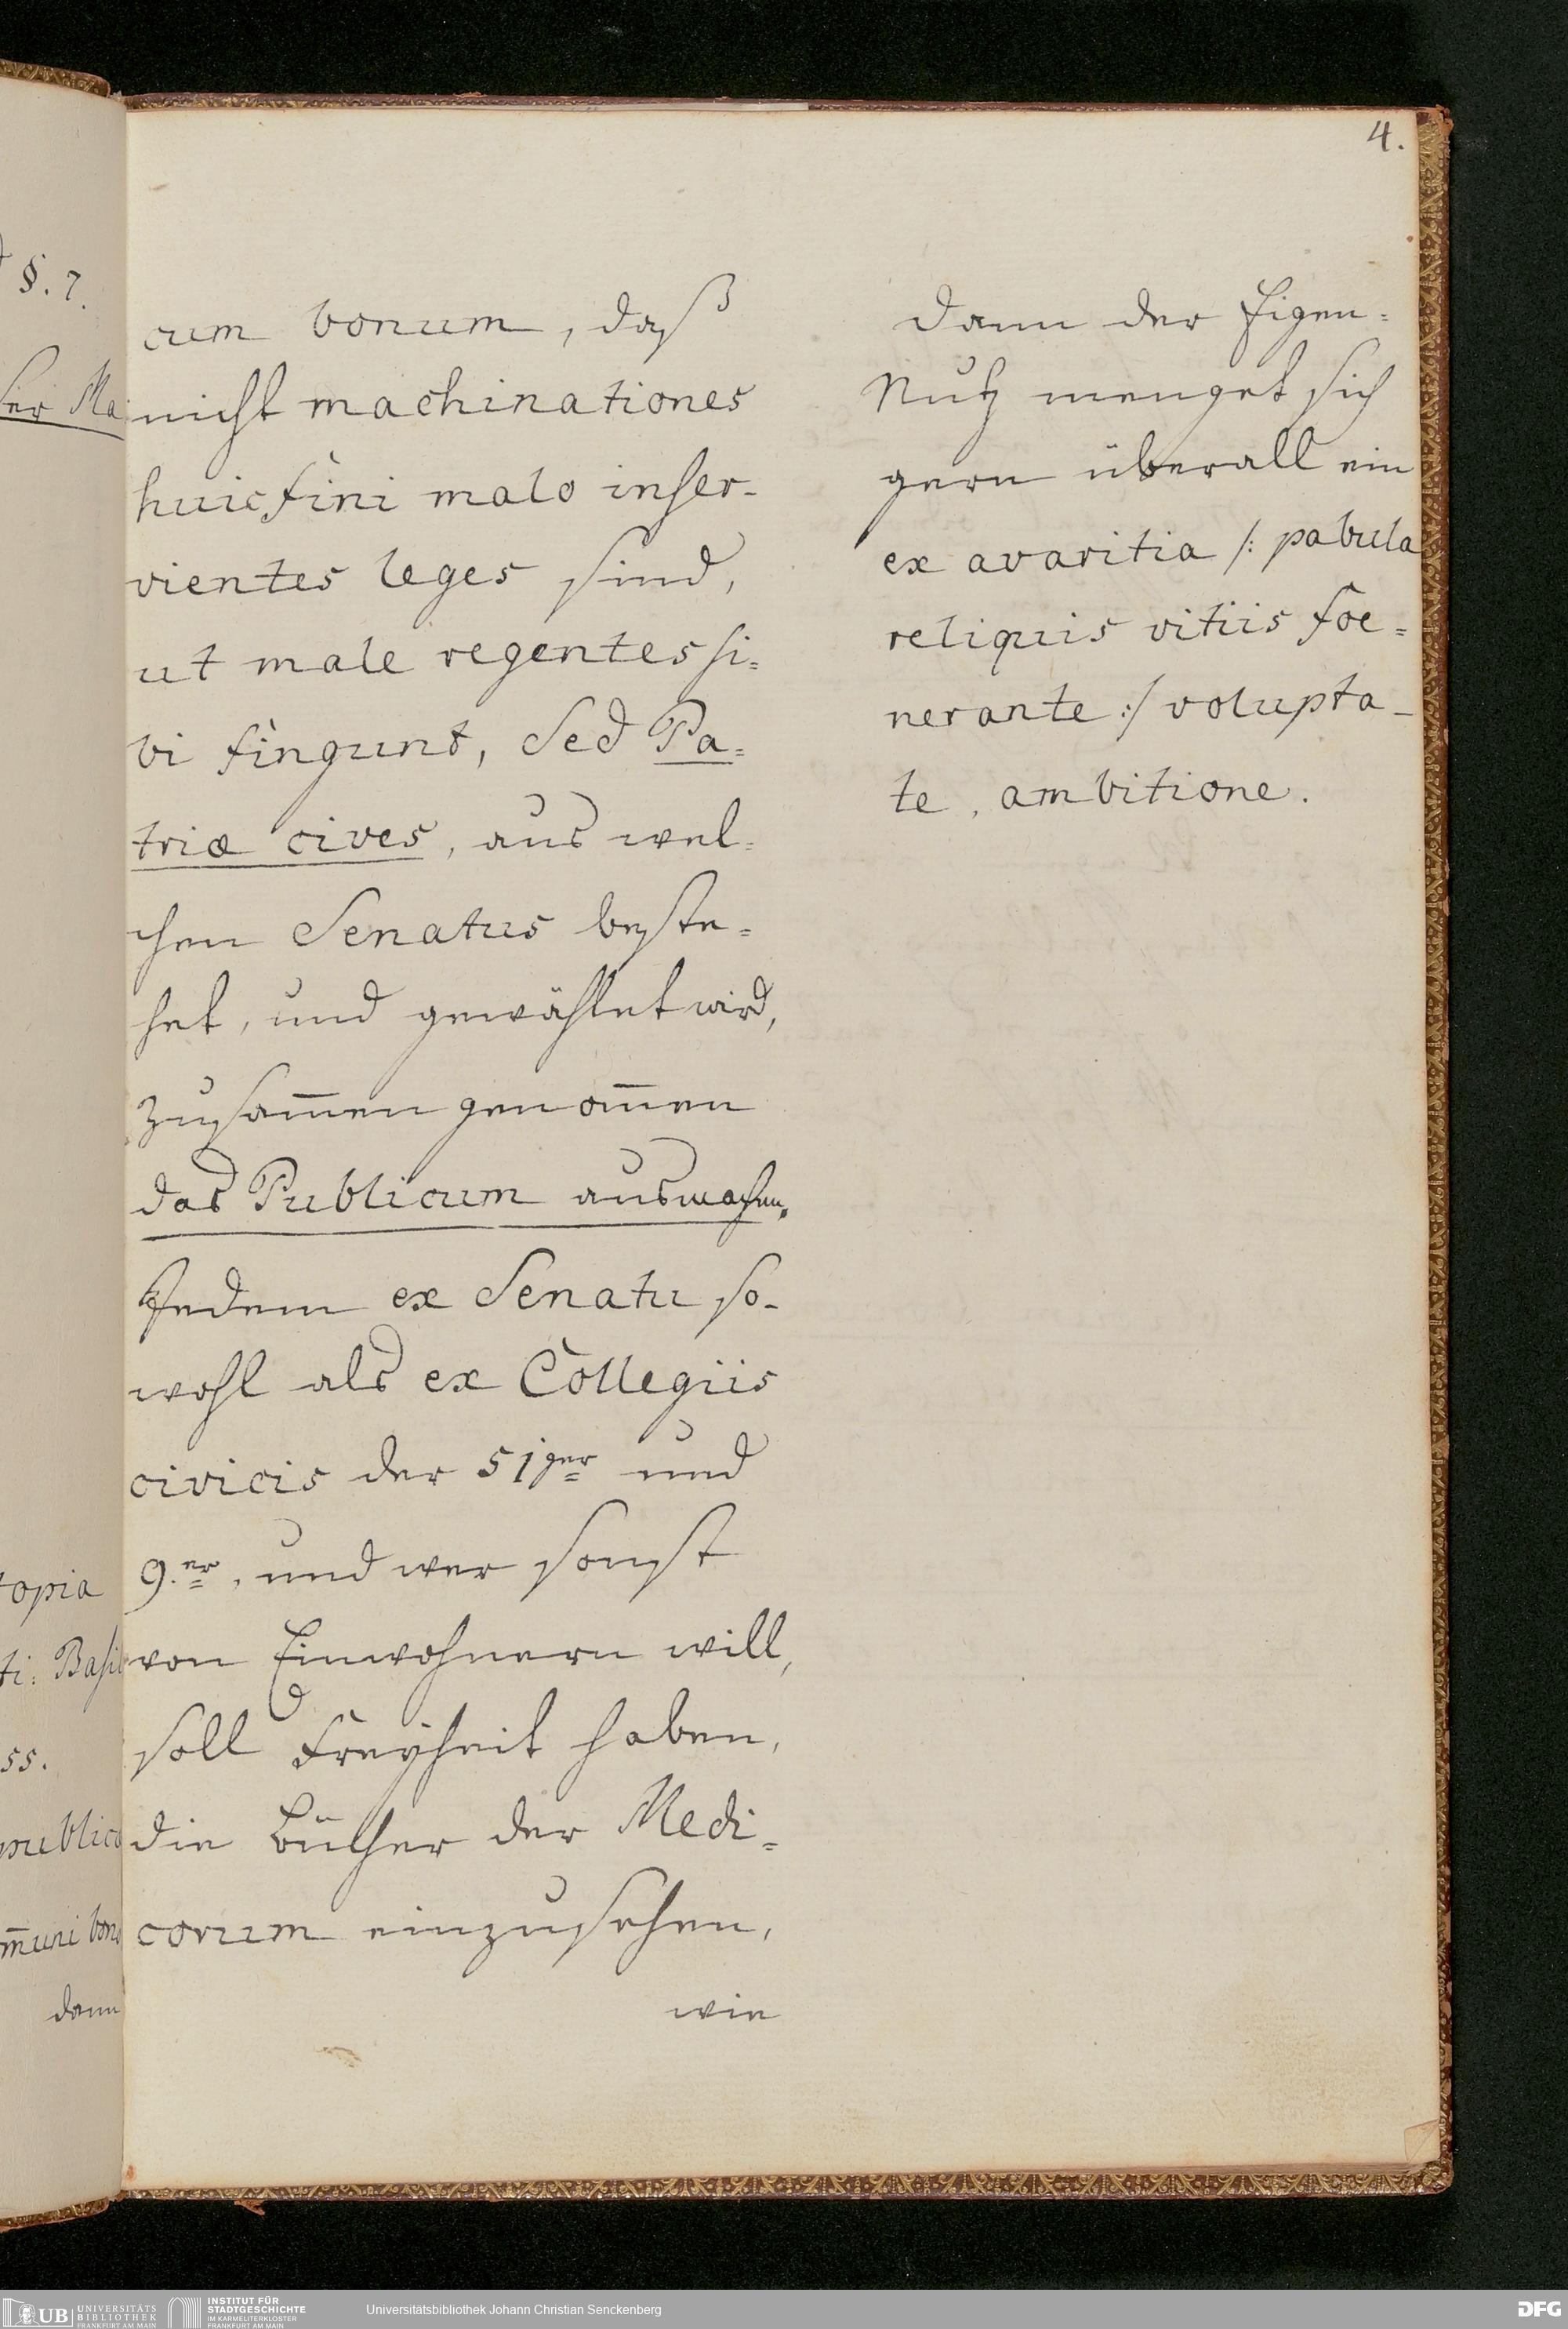 4.
cum bonum, daß
nicht machinationes
huic fini malo inser-
vientes leges sind,
ut male regentes si=
bi fingunt, Sed Pa=
triæ cives, aus wel=
chen Senatus beste=
het, und gewählet wird,
zusam̄en genom̄en
das Publicum ausmachen.
Jedem ex Senatu so-
wohl als ex Collegiis
civicis der 51ger und
9.er, und wer sonst
von Einwohnern will,
soll Freyheit haben,
die Bücher der Medi=
corum einzusehen,
wie
Dann der Eigen=
Nutz menget sich
gern überall ein
ex avaritia /: pabula
reliquis vitiis foe=
nerante :/ volupta-
te, ambitione.
§. 7.
ser Ma
topia
ti: Basil
55.
publico
m̄uni bono
dann
UB UNIVERSITÄTS
BIBLIOTHEK
FRANKFURT AM MAIN
INSTITUT FÜR
STADTGESCHICHTE
IM KARMELITERKLOSTER
FRANKFURT AM MAIN
Universitätsbibliothek Johann Christian Senckenberg
DFG